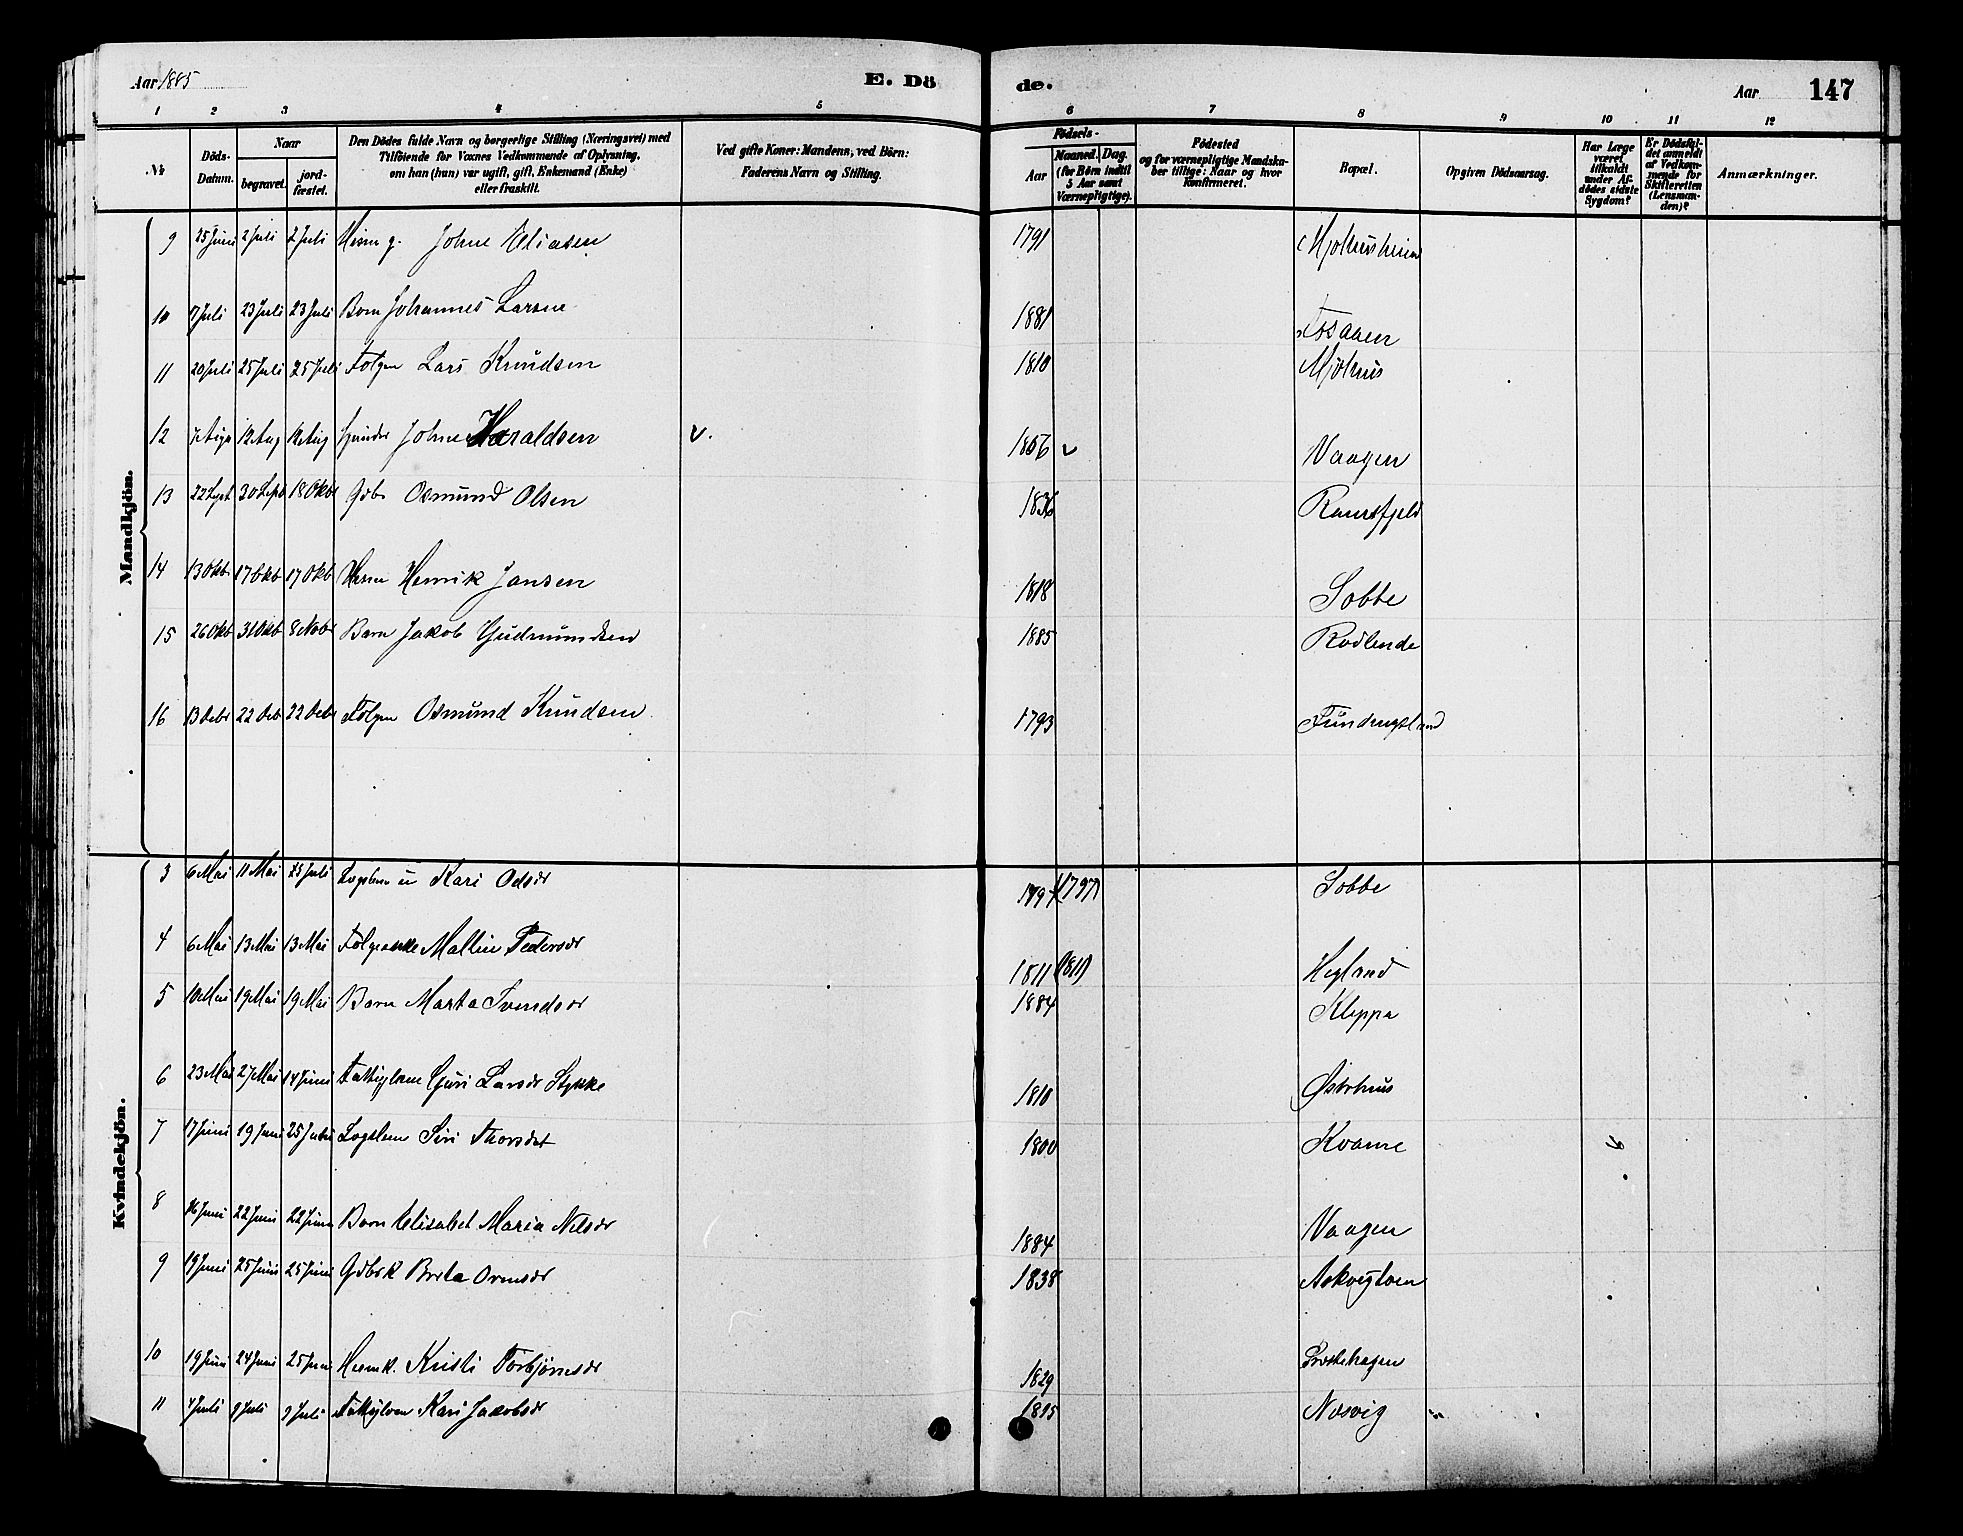 Aar 1885 E. Dö de. Aar 147
1 2 3 4 5 6 7 8 9 10 11 12
№ Döds-Datum. Naar begravet. jord-fæstet. Den Dödes fulde Navn og borgerlige Stilling (Næringsvei) med Tilföiende for Voxnes Vedkommende af Oplysning, om han (hun) var ugift, gift, Enkemand (Enke) eller fraskilt. Ved gifte Koner: Mandens, ved Börn: Faderens Navn og Stilling. Födsels- Aar Maaned. Dag. (for Börn indtil 5 Aar samt Værnepligtige). Födested og for værnepligtige Mandskaber tillige: Naar og hvor Konfirmeret. Bopæl. Opgiven Dödsaarsag. Har Læge været tilkaldt under Afdödes sidste Sygdom? Er Dödsfaldet anmeldt af Vedkommende for Skifteretten (Lensmanden)? Anmærkninger.
Mandkjön.
9 25 Juni 2 Juli 2 Juli Huusm g. Johne Eliasen 1791
10 7 Juli 23 Juli 23 Juli Barn Johannes Larsen 1881 Fosaaen
11 20 Juli 25 Juli 25 Juli Folgem Lars Knudsen 1810 Mjølhus
12 7 Aug 12 Aug 12 Aug Johne Haraldsen v. 1856 v Vaagen
13 22 Sept 30 Sept 18 Okb Gdbr Osmund Olsen 1836 Ramsfjeld
14 13 Okb 17 Okb 17 Okb Huusm Henrik Jansen 1818 Sobbe
15 26 Okb 31 Okb 8 Novb Barn Jakob Gudmundsen 1885 Rødlende
16 13 Debr 22 Deb 22 Deb Folgem Osmund Knudsen 1793
Kvindekjön.
3 6 Mai 11 Mai 25 Juli Lægslem u Kari Odsdr 1797 (1797) Sobbe
4 6 Mai 13 Mai 13 Mai Folgeenke Mallin Pedersdr 1811 (1811) Hegland
5 10 Mai 19 Mai 19 Mai Barn Marta Svendsdr 1884 Kleppa
6 23 Mai 27 Mai 14 Juni Fattiglem Guri Larsdr Stykke 1810 Østerhus
7 17 Juni 19 Juni 25 Juli Lægslem Siri Thorsdat 1800 Kvame
8 16 Juni 22 Juni 22 Juni Barn Elisabet Maria Nilsdr 1884 Vaagen
9 19 Juni 25 Juni 25 Juni Gdbrk Berta Ormsdr 1838 Askvigtoen
10 19 Juni 24 Juni 25 Juni Huusmk. Kristi Torbjørnsdr 1829 Præstehagen
11 4 Juli 9 Juli 9 Juli Fattiglem Kari Jakobsdr 1815 Nesvig